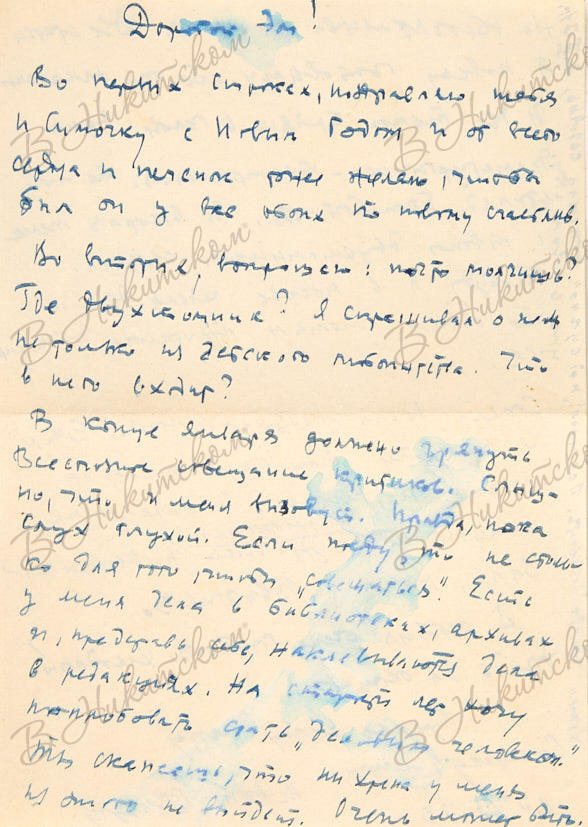 Дорогой
Во первых строках, поздравляю тебя
и Симочку с Новым Годом и от всего
сердца и печенок тоже желаю, чтобы
был он у вас обоих по новому счастлив.
Во вторых, вопрошаю: почто молчишь?
Где двухтомник? Я спрашиваю о нем
не только из детского любопытства. Что
в него входит?
В конце января должно грянуть
Всесоюзное совещание критиков. Слыш-
но, что и меня вызовут. Правда, пока
слух глухой. Если поеду, то не столь-
ко для того, чтобы „совещаться“. Есть
у меня дела в библиотеках, архивах
и, представь себе, наклевываются дела
в редакциях. На старости лет хочу
попробовать стать „деловым человеком.“
Ты скажешь, что ни хрена у меня
из этого не выйдет. Очень может быть.
В Никитском
В Никитском
В Никитском
В Никитском
В Никитском
В Никитском
В Никитском
В Никитском